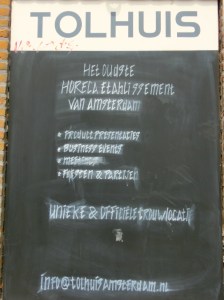 TOLHUIS
HET OUDSTE
HORECA ETABLISSEMENT
VAN AMSTERDAM
* PRODUCTPRESENTATIES
* BUSINESS EVENTS
* FEESTEN & PARTIJEN
UNIEKE & OFFICIËLE TROUWLOCATIE
info@tolhuisamsterdam.nl